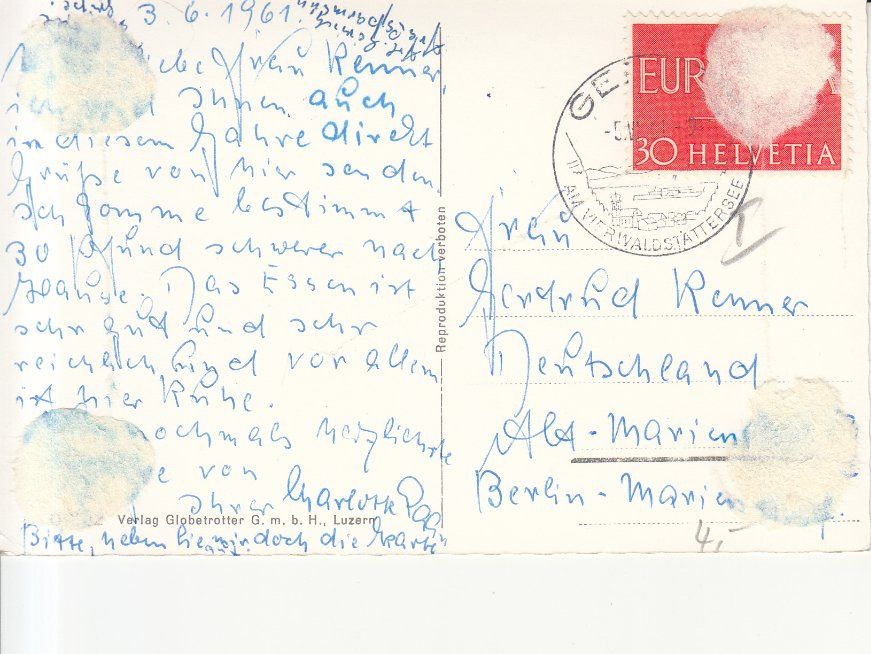 3.6.1961.
liebe Frau Renner,
Ihnen auch
in diesem Jahre direkt
Grüße von hier senden.
Ich komme bestimmt
30 Pfund schwerer nach
Hause. Das Essen ist
sehr gut und sehr
reichlich und vor allem
ist hier Ruhe.
nochmals herzlichste
von
Ihrer Charlotte
Bitte, heben Sie mir doch die Karte
Verlag Globetrotter G. m. b. H., Luzern
Reproduktion verboten
EUR
30 HELVETIA
GE
AM VIERWALDSTÄTTERSEE
Frau
Gerdrud Renner
Deutschland
Alt-Marien
Berlin-Marien
4,-